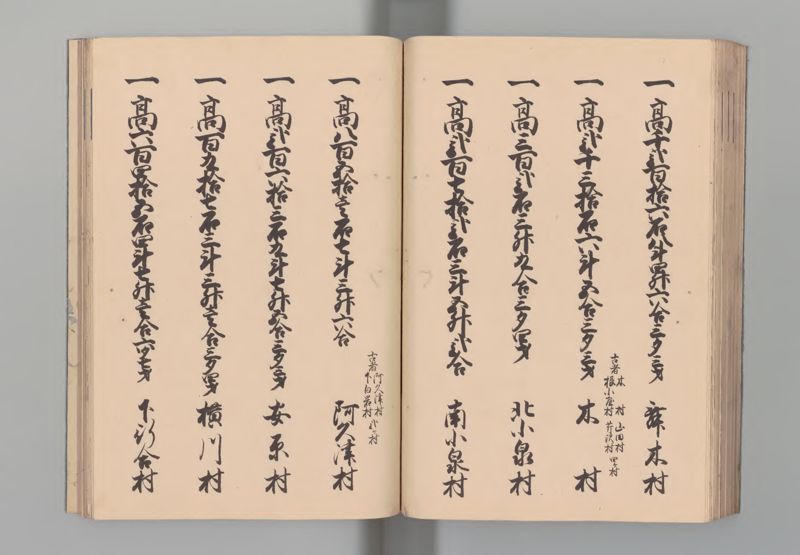 一高千弐百拾六石八斗四升六合三夕三才 舞木村
古者 木村 山田村
根小屋村 芹沢村 四ケ村
一高弐千三拾石六斗五合三夕三才 木村
一高三百弐石三升九合三夕四才 北小泉村
一高弐百七拾弐石三斗五升弐合 南小泉村
古者 阿久津村
下白岩村 弐ケ村
一高八百五拾壱石七斗三升六合 阿久津村
一高弐百六拾三石九斗七升五合三夕三才 安原村
一高百九拾七石三斗三升壱合三夕四才 横川村
一高六百四拾五石四斗七升壱合六夕七才 下行合村